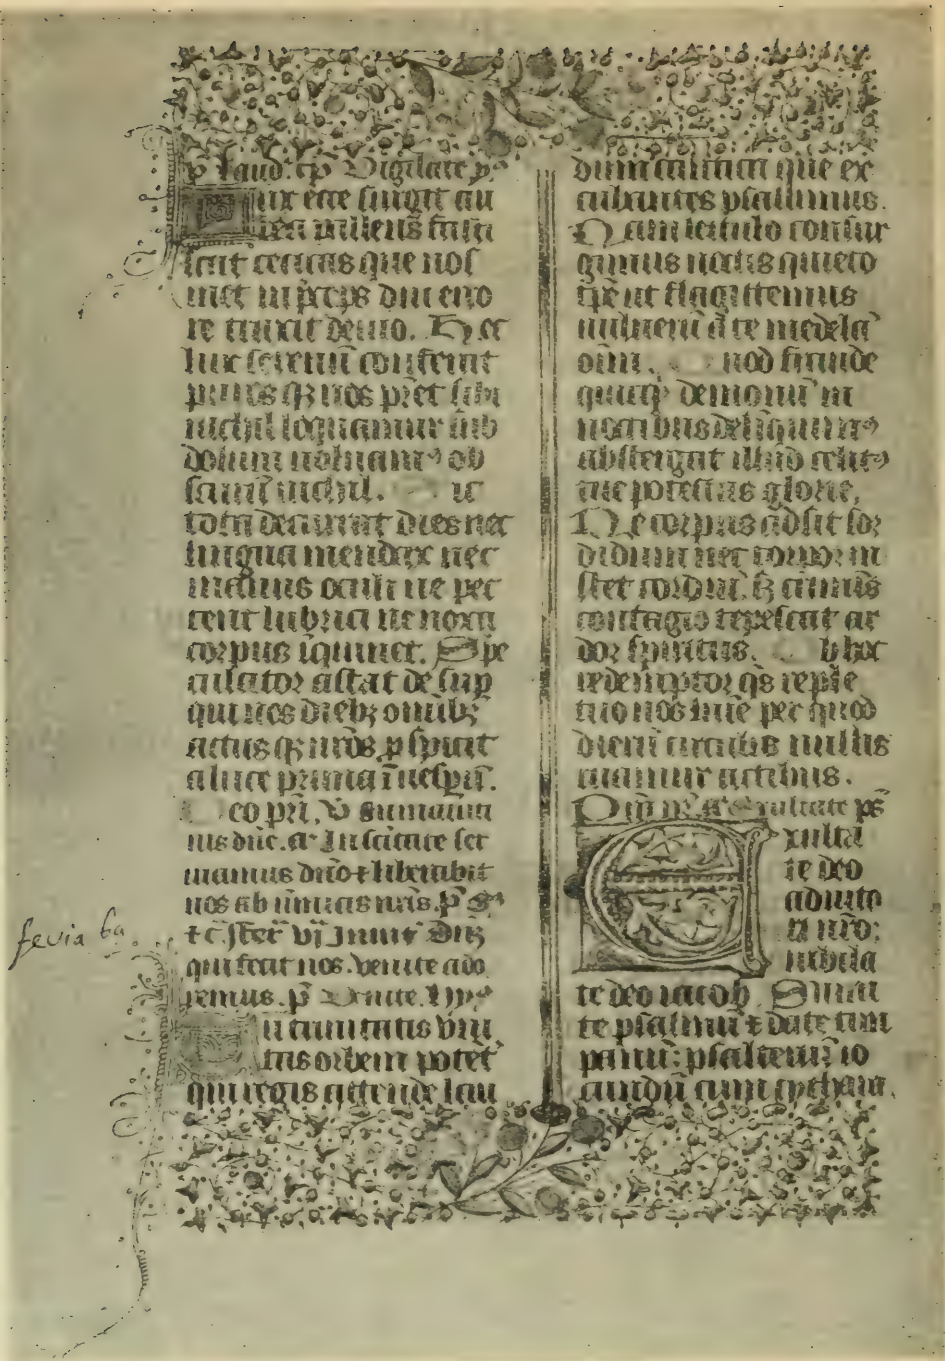 p̄ laud. Vigilate
lux ecce surgit au
rea pallens fatis
scat cecitas que nos
met in p̄ceps diu erro
re traxit deuio. Hec
lux serenū conferat
puros qꝫ nos p̄stet sibi
nichil loquamur sub
dolum uoluam9 ob
scurū nichil. ic
tota decurrat dies nec
lingua mendax nec
manus oculi ne pec
cent lubrici ne noxa
corpus īquinet. Spe
culator astat de sup
qui nos diebꝫ omibꝫ
actus qꝫ nr̄os p̄spicit
a luce prima ī uesperū.
eo pr̄i, V̄
nus dn̄e. a Jn scitate ser
uiamus dn̄o ⁊ liberabit
nos ab inimicis nr̄is. p̄
Jnuit Dn̄ꝫ
qui fecit nos. venite ado
remus. p̄ Venite. ymp9
feria 6a
Tu trinitatis vni
tas orbem potēt
qui regis attende lau
dum cantica que ex
cubantes psallimus.
Nam lectulo consur
gimus noctis quieto
tp̄e ut flagittemus
uulnerū a te medelā
oīm. uod fraude
quicqͥd demonū in
noctibus deliquim9
abstergat illud celit9
tue potestas glorie,
Ne corpus adsit sor
didum nec torpor in
stet cordiū, ꝫ criminis
contagio tepescat ar
dor spiritus. b hoc
redemptor qs reple
tuo nos lumīe per quod
dierū circulis nullis
ruamur actibus.
Exultate ps̄
Exulta
te deo
adiuto
ri nr̄o:
iubila
te deo iacob. Sumi
te psalmū ⁊ date tim
panū: psalteriū io
cundū cum cythara.